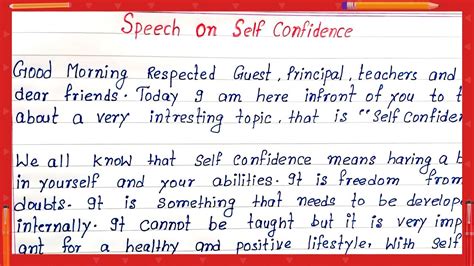 Speech on Self Confidence
Good Morning Respected Guest, Principal, teachers and
dear friends. Today I am here infront of you to t
about a very intresting topic, that is "Self Confiden
We all know that self confidence means having a b
in yourself and your abilities. It is freedom from
doubts. It is something that needs to be develope
internally. It cannot be taught but it is very imp
ant for a healthy and positive lifestyle. With self